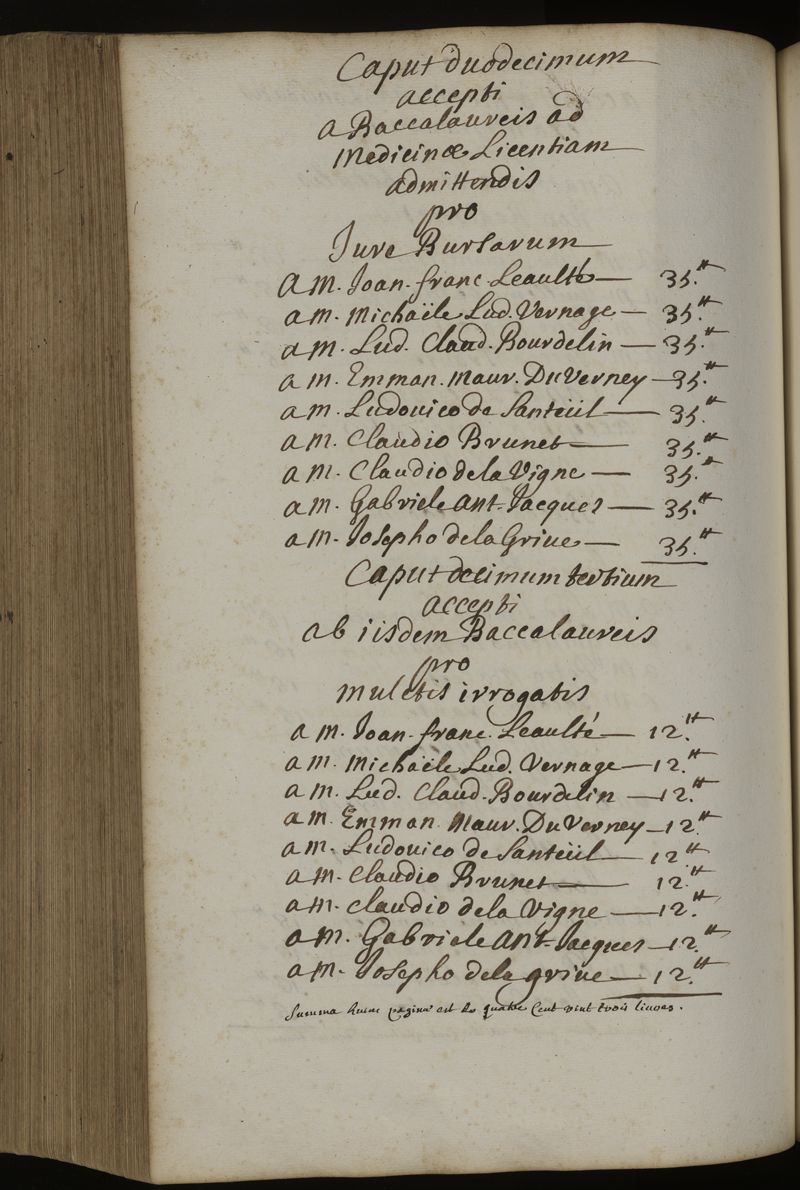 Caput duodecimum
accepti
a Baccalaureis ad
Medicinæ Licentiam
admittendis
pro
Jure Bursarum
a M. Joan. franc. Leaulté — 35.tt
a m. Michaële Lud. Vernage — 35.tt
a m. Lud. Claud. Bourdelin — 35.tt
a m. Emman. Maur. DuVerney — 35.tt
a m. Ludovico de Santeüil — 35.tt
a m. Claudio Brunet — 35.tt
a m. Claudio de la Vigne — 35.tt
a m. Gabriele Ant. Jacques — 35.tt
a m. Josepho de la Griue — 35.tt
Caput decimum tertium
accepti
ab iisdem Baccalaureis
pro
mulctis irrogatis
a m. Joan. franc. Leaulté — 12.tt
a m. Michaële Lud. Vernage — 12.tt
a m. Lud. Claud. Bourdelin — 12.tt
a m. Emman. Maur. DuVerney — 12.tt
a m. Ludouico de Santeüil — 12tt
a m. Claudio Brunet — 12.tt
a m. claudio de la Vigne — 12.tt
a m. Gabriele Ant. Jacques — 12.tt
a m. Josepho de la griue — 12.tt
Summa huius paginæ est de quatre Cent vint trois liures.